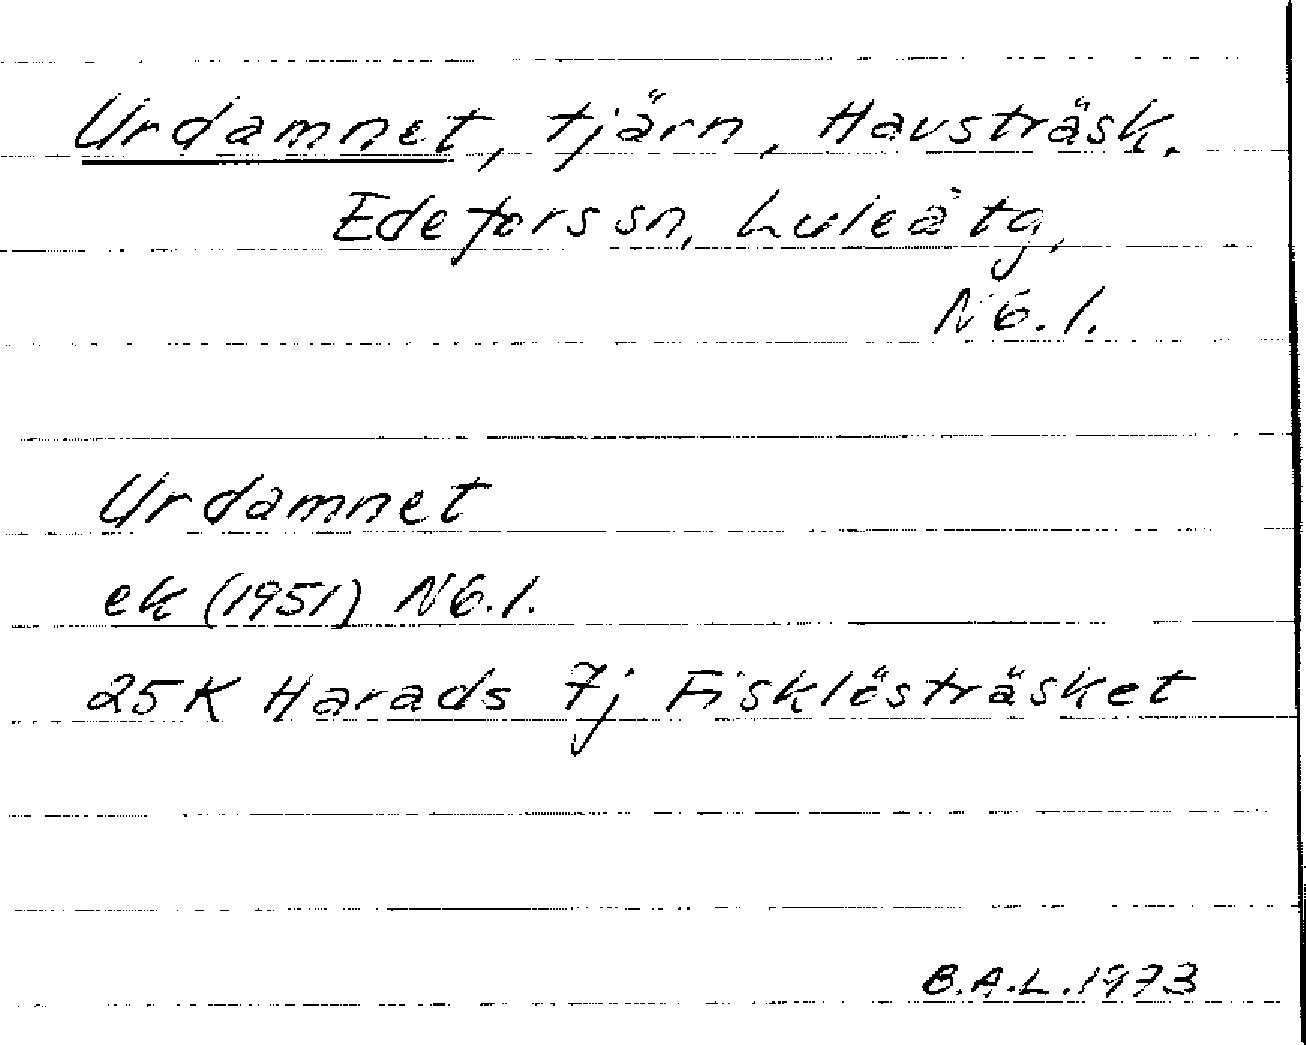 Urdamnet, tjärn, Havsträsk.
Edefors sn, Luleå tg,
Nb.l.
Urdamnet
ek (1951) Nb.l.
25K Harads 7j Fisklösträsket
B.A.L. 1973